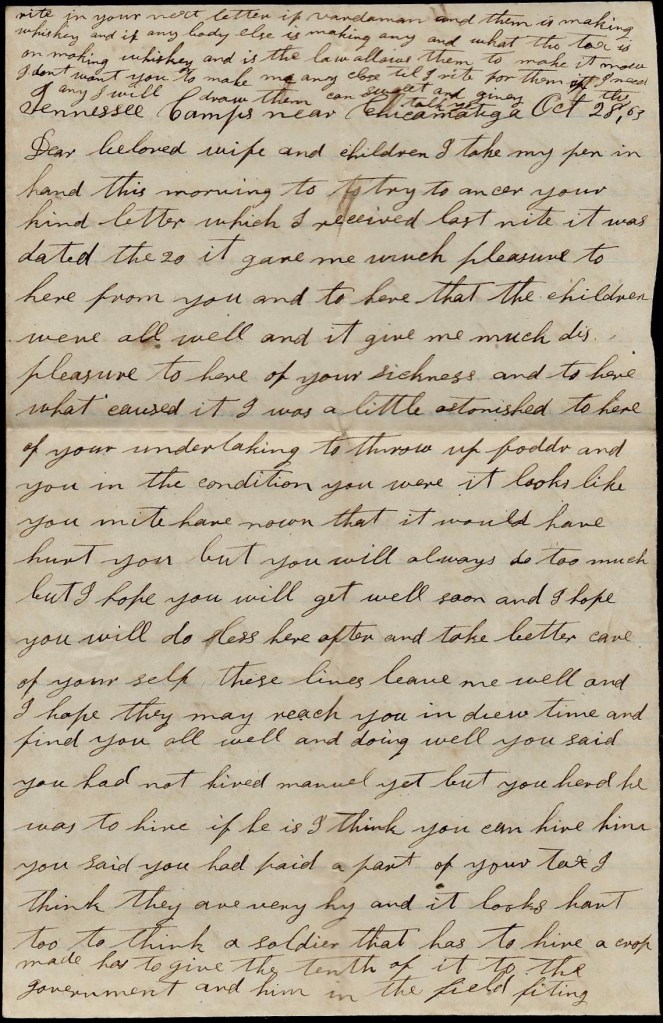 rite in your next letter if vardaman and them is making
whiskey and if any body else is making any and what the tax is
on making whiskey and is the law allows them to make it now
I dont want you to make me any close til I rite for them if I need
any I will draw them can sweet and giney the
talk yet
Tennessee Camps near Chicamauga Oct 28, 63
Dear beloved wife and children I take my pen in
hand this morning to to try to ancer your
kind letter which I received last nite it was
dated the 20 it gave me much pleasure to
here from you and to here that the children
were all well and it give me much dis
pleasure to here of your sickness and to here
what caused it I was a little astonished to here
of your undertaking to throw up foddr and
you in the condition you were it looks like
you mite have nown that it would have
hurt you but you will always do too much
but I hope you will get well soon and I hope
you will do less here after and take better care
of your self these lines leave me well and
I hope they may reach you in diew time and
find you all well and doing well you said
you had not hired manuel yet but you herd he
was to hire if he is I think you can hire him
you said you had paid a part of your tax I
think they are very hy and it looks hart
too to think a soldier that has to hire a crop
made has to give the tenth of it to the
government and him in the field fiting